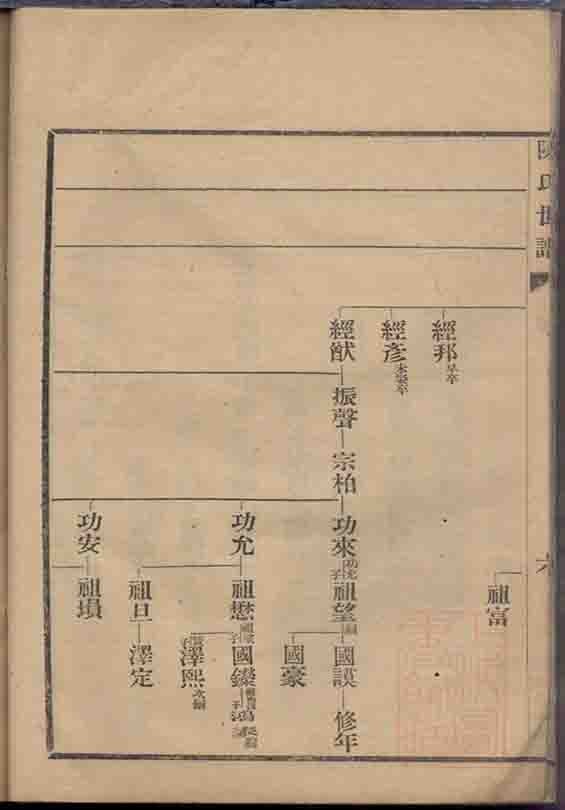 陳氏世譜
六
祖富
經邦 早卒
經彦 未娶卒
經猷
振聲
宗柏
功來
祖望
國謨
修年
國豪
功允
祖懋
國鑅
鴻
澤熙 次嗣
祖旦
澤定
功安
祖塤